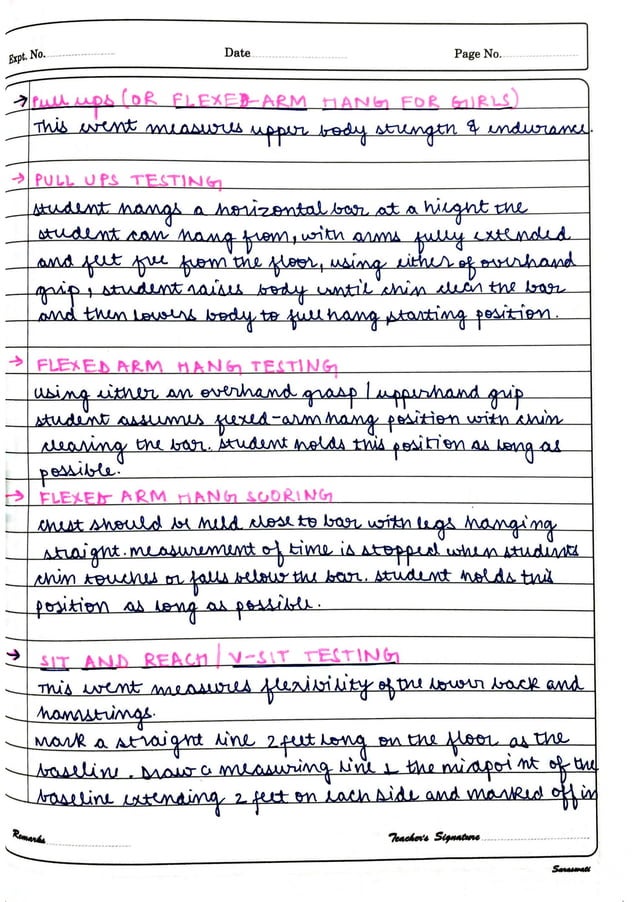 Expt. No.
Date
Page No.
→ Pull ups (OR FLEXED-ARM HANG FOR GIRLS)
This event measures upper body strength & endurance.
→ PULL UPS TESTING
student hangs a horizontal bar at a hieght the
student can hang from, with arms fully extended
and feet free from the floor, using either of overhand
grip, student raises body until chin clear the bar
and then lowers body to full hang starting position.
→ FLEXED ARM HANG TESTING
using either an overhand grasp / upperhand grip
student assumes flexed-arm hang position with chin
clearing the bar. student holds this position as long as
possible.
→ FLEXED ARM HANG SCORING
chest should be held close to bar with legs hanging
straight. measurement of time is stopped when students
chin touches or falls below the bar. student holds this
position as long as possible.
→ SIT AND REACH / V-SIT TESTING
This event measures flexivility of the lower back and
hamstrings.
Mark a straight line 2 feet long on the floor as the
baseline. Draw a measuring line ⊥ the midpoint of the
baseline extending 2 feet on each side and marked off in
Remarks
Teacher's Signature
Saraswati